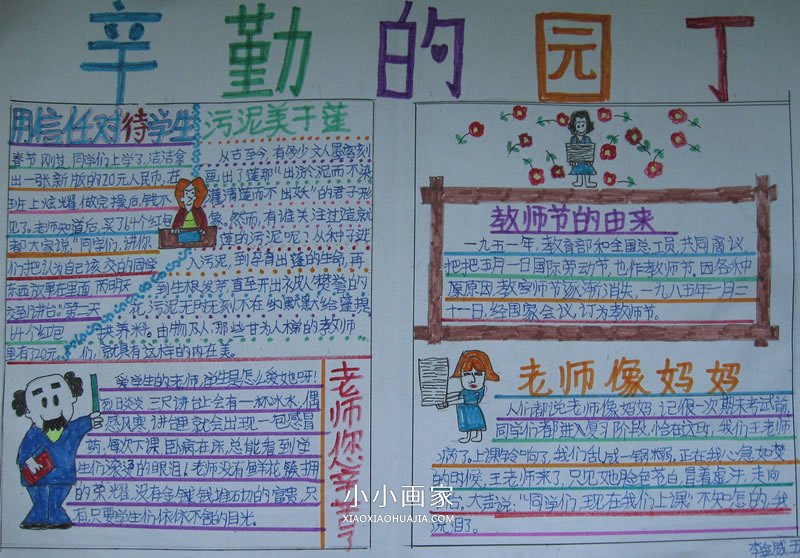 辛勤的园丁
用信任对待学生
春节刚过,同学们上学了,洁洁拿
出一张新版的20元人民币,在
班上炫耀,做完操后,钱不
见了。老师知道后,买了64个红包
对大家说:"同学们,请你
们把认为自己该交的同学
东西放在里面,而明天
交到讲台"第二天
64个红包
里有120元。
污泥美于莲
从古至今,有多少文人墨客刻
画出了莲那"出淤泥而不染
濯清莲而不出妖"的君子形
象,然而,有谁关注过造就
莲的污泥呢?从种子进
入污泥,到孕育出莲的生命,再
到生根发芽直至开出
花,污泥无时无刻不在给
供养料。由物及人,那些甘为人梯的教师
们,就具有这样的内在美。
教师节的由来
一九五一年,教育部和全国总工员,共同商议
把把五月一日国际劳动节,也作教师节,因各种
原原因教师节逐渐消失,一九八五年一月三
十一日,经国家会议,订为教师节。
爱学生的老师,学生是怎么爱她呀!
烈日炎炎,三尺讲台上会有一杯冰水,偶
感风寒,讲台里就会出现一包感冒
药,每次下课,卧病在床,总能看到学
生们滚烫的眼泪!老师没有鲜花簇拥
的荣耀,没有金钱
有只要学生们依依不舍的目光。
老师您辛苦了
老师像妈妈
人们都说老师像妈妈,记得一次期末考试前
同学们都进入复习阶段,恰在这时,我们王老师
病了。上课铃响了,我们乱成一锅粥,正在我心急如焚
的时候,王老师来了,只见她脸色苍白,冒着虚汗,走向
大声说:"同学们,现在我们上课"不知怎的,我
流泪了。
小小画家
XIAOXIAOHUAJIA.COM